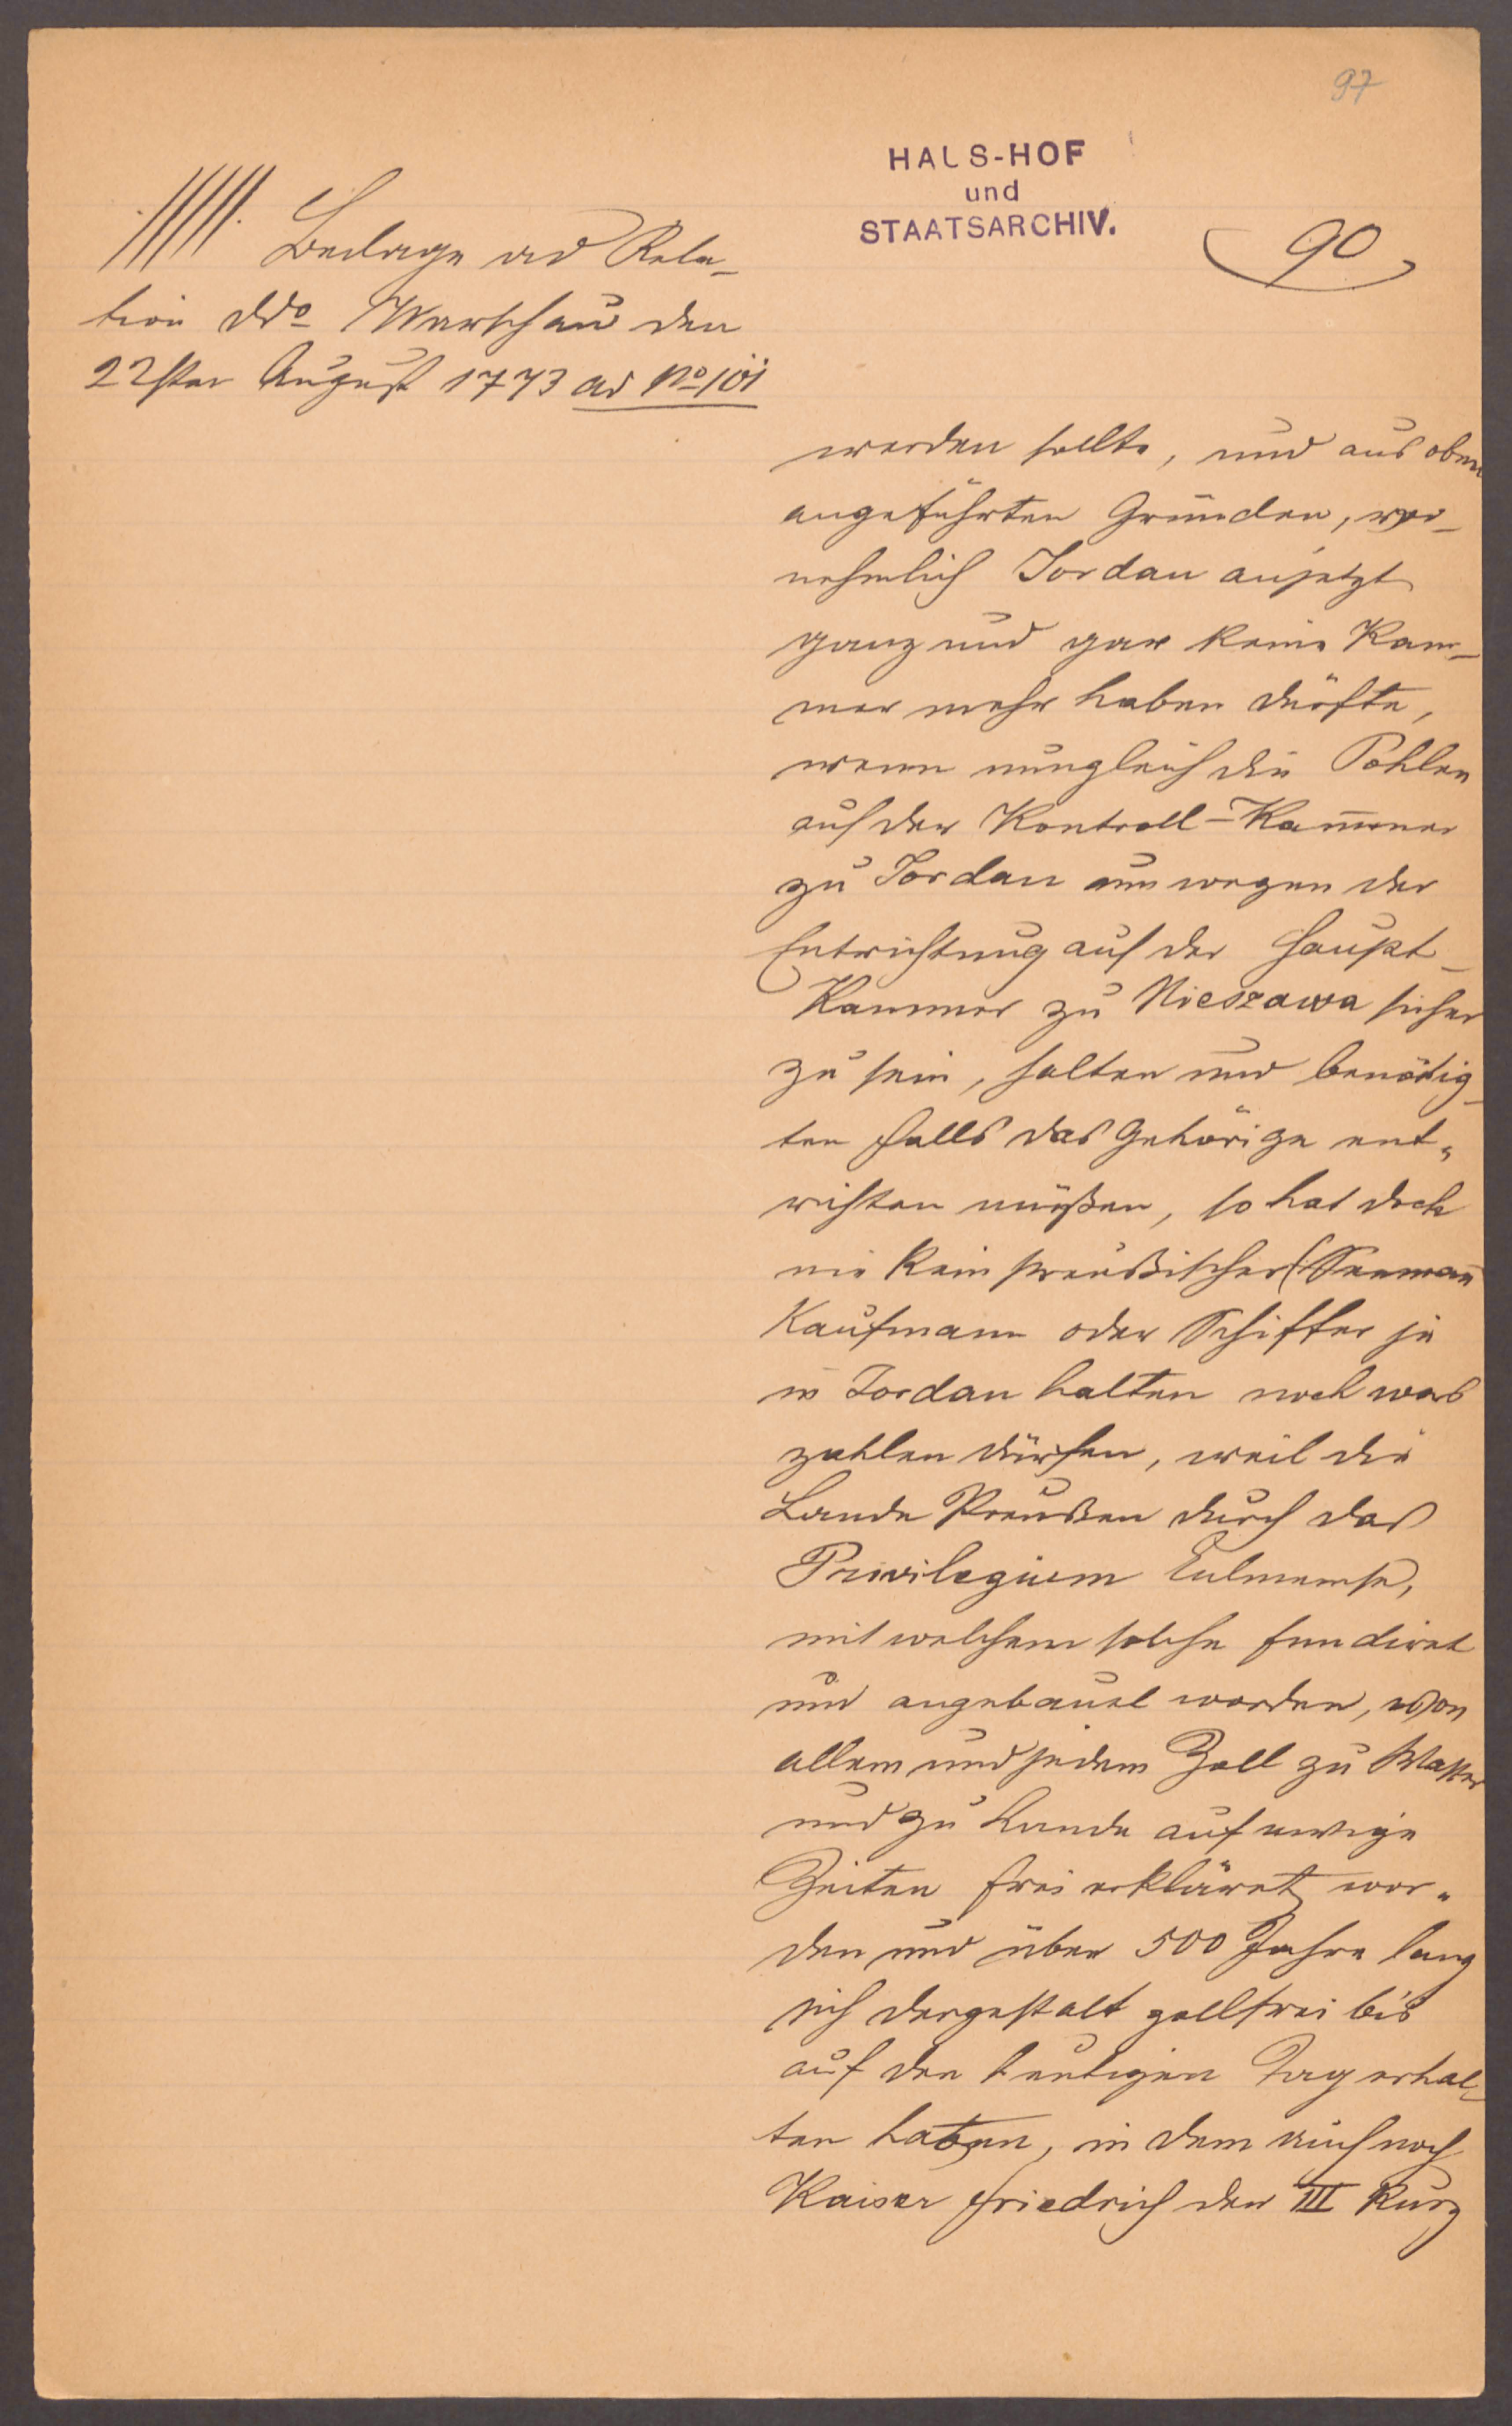 97
HAUS-HOF
und
STAATSARCHIV.
90
Beilage ad Rela-
tion ddo Warschau den
22sten August 1773 ad No 101
werden sollte, und aus oben
angeführten Gründen, vor-
nehmlich Jordan anjetzt
ganz und gar keine Kam-
mer mehr haben dürfte,
wenn nungleich die Pohlen
auf der Kontroll-Kammer
zu Jordan um wegen der
Entrichtung auf der Haupt-
Kammer zu Nieszawa sicher
zu sein, halten und benötig-
ten Falls das Gehörige ent-
richten müßen, so hat doch
nie kein preußischer Seeman
Kaufmann oder Schiffer je
in Jordan halten noch was
zahlen dürfen, weil die
Lande Preußen durch das
Privilegium Culmense,
mit welchem solche fundiret
und angebauet worden, von
allem und jedem Zoll zu Wasser
und zu Lande auf ewige
Zeiten frei erkläret wor-
den und über 500 Jahre lang
sich dergestalt zollfrei bis
auf den heutigen Tag erhal-
ten haben, in dem auch noch
Kaiser Friedrich der III kurz